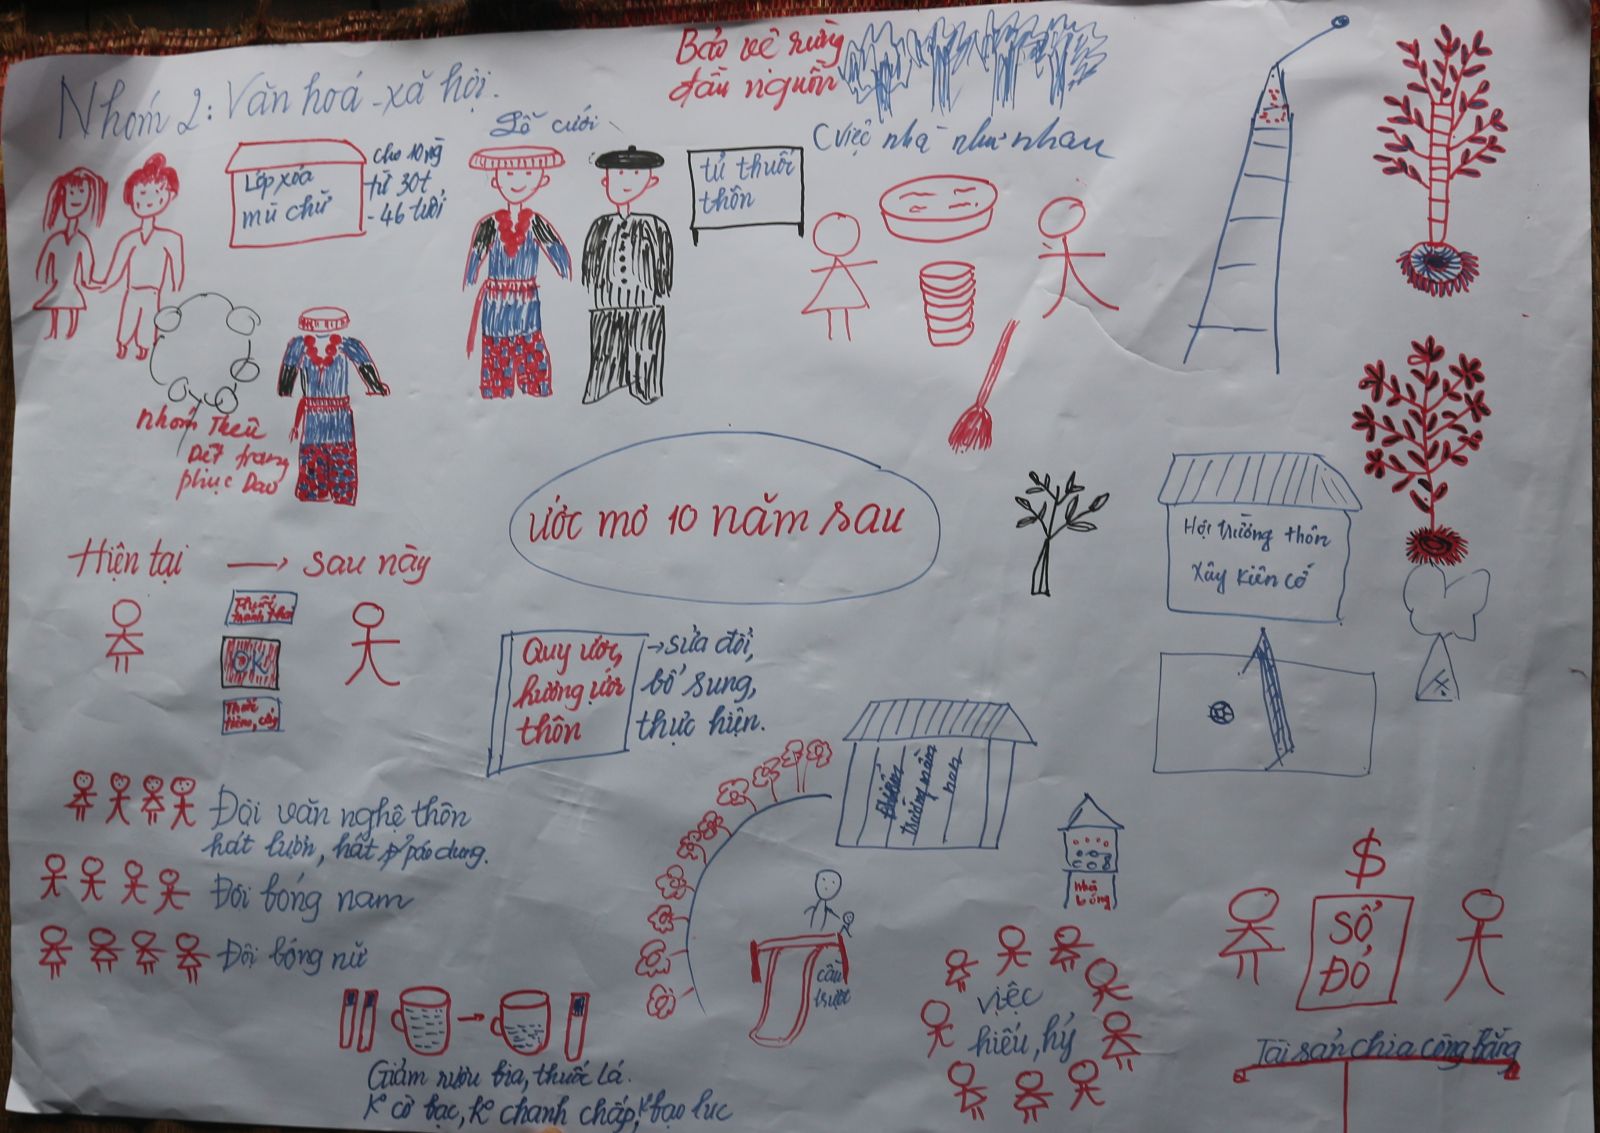 Nhóm 2: Văn hoá - xã hội.
Bảo vệ rừng
đầu nguồn
Lớp xóa
mù chữ
cho 10 ng
từ 30t
- 46 tuổi
tủ thuốc
thôn
Cviệc nhà như nhau
nhóm Thêu
Dệt trang
phục Dao
ước mơ 10 năm sau
Hội trường thôn
Xây kiên cố
Hiện tại → sau này
OK
Quy ước,
hương ước
thôn
→ sửa đổi,
bổ sung,
thực hiện.
trường mầm
non
Đội văn nghệ thôn
hát lượn, hát páo dung.
Đội bóng nam
Đội bóng nữ
cầu
trượt
việc
hiếu, hỷ
$
SỔ
ĐỎ
Tài sản chia công bằng
Giảm rượu bia, thuốc lá.
Kº cờ bạc, Kº chanh chấp, Kº bạo lực